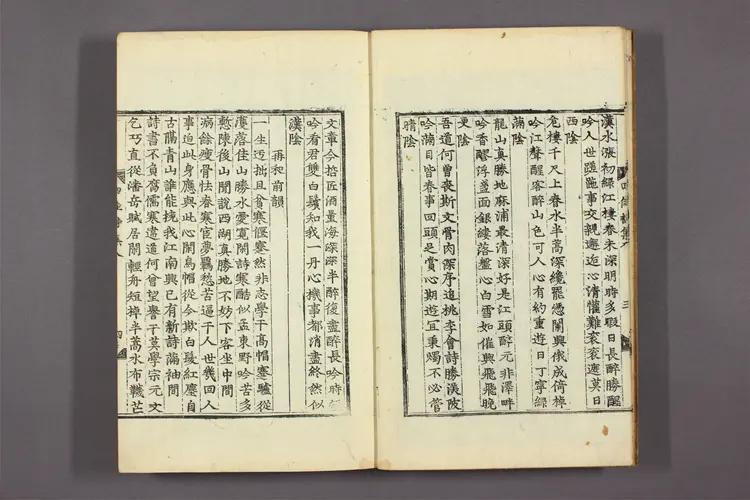 漢水漲初綠江樓春未深明時多暇日長醉勝醒
吟人世事交親邂逅心清懽難袞袞遮莫日
西陰
危樓千尺上春水半蒿深纔罷憑闌興俄成倚棹
吟江聲醒客醉山色可人心有約重遊日丁寧綠
滿陰
龍山真勝地麻浦最清深好是江頭醉元非澤畔
吟香醪浮盞面銀縷落盤心白雪如催興飛飛晚
更陰
吾道何曾喪斯文骨肉深序追桃李會詩勝漢陂
吟滿目皆春事回頭是賞心期遊宜秉燭不必管
晴陰
三
文章今哲匠酒量海深深半醉復盡醉長吟時
吟看君雙白鬢知我一丹心機事都消盡終然似
漢陰
再和前韻
一生迂拙且貧寒偃蹇然非志學干高帽蹇驢從
濩落佳山勝水愛寬閑詩寒酷似孟東野吟苦多
慙陳後山聞說西湖真勝地不妨下客坐中間
病餘瘦骨怯春寒宦夢羈愁苦逼干人世幾回人
事迫此身應與此心閑烏帽從今欺白髮紅塵自
古隔青山誰能挽我江南興已有新詩滿袖間
詩書不負舊儒寒遭何曾望譽干莫學宗元文
乞巧直從潘岳賦居閑輕舟短棹半蒿水布襪芒
四